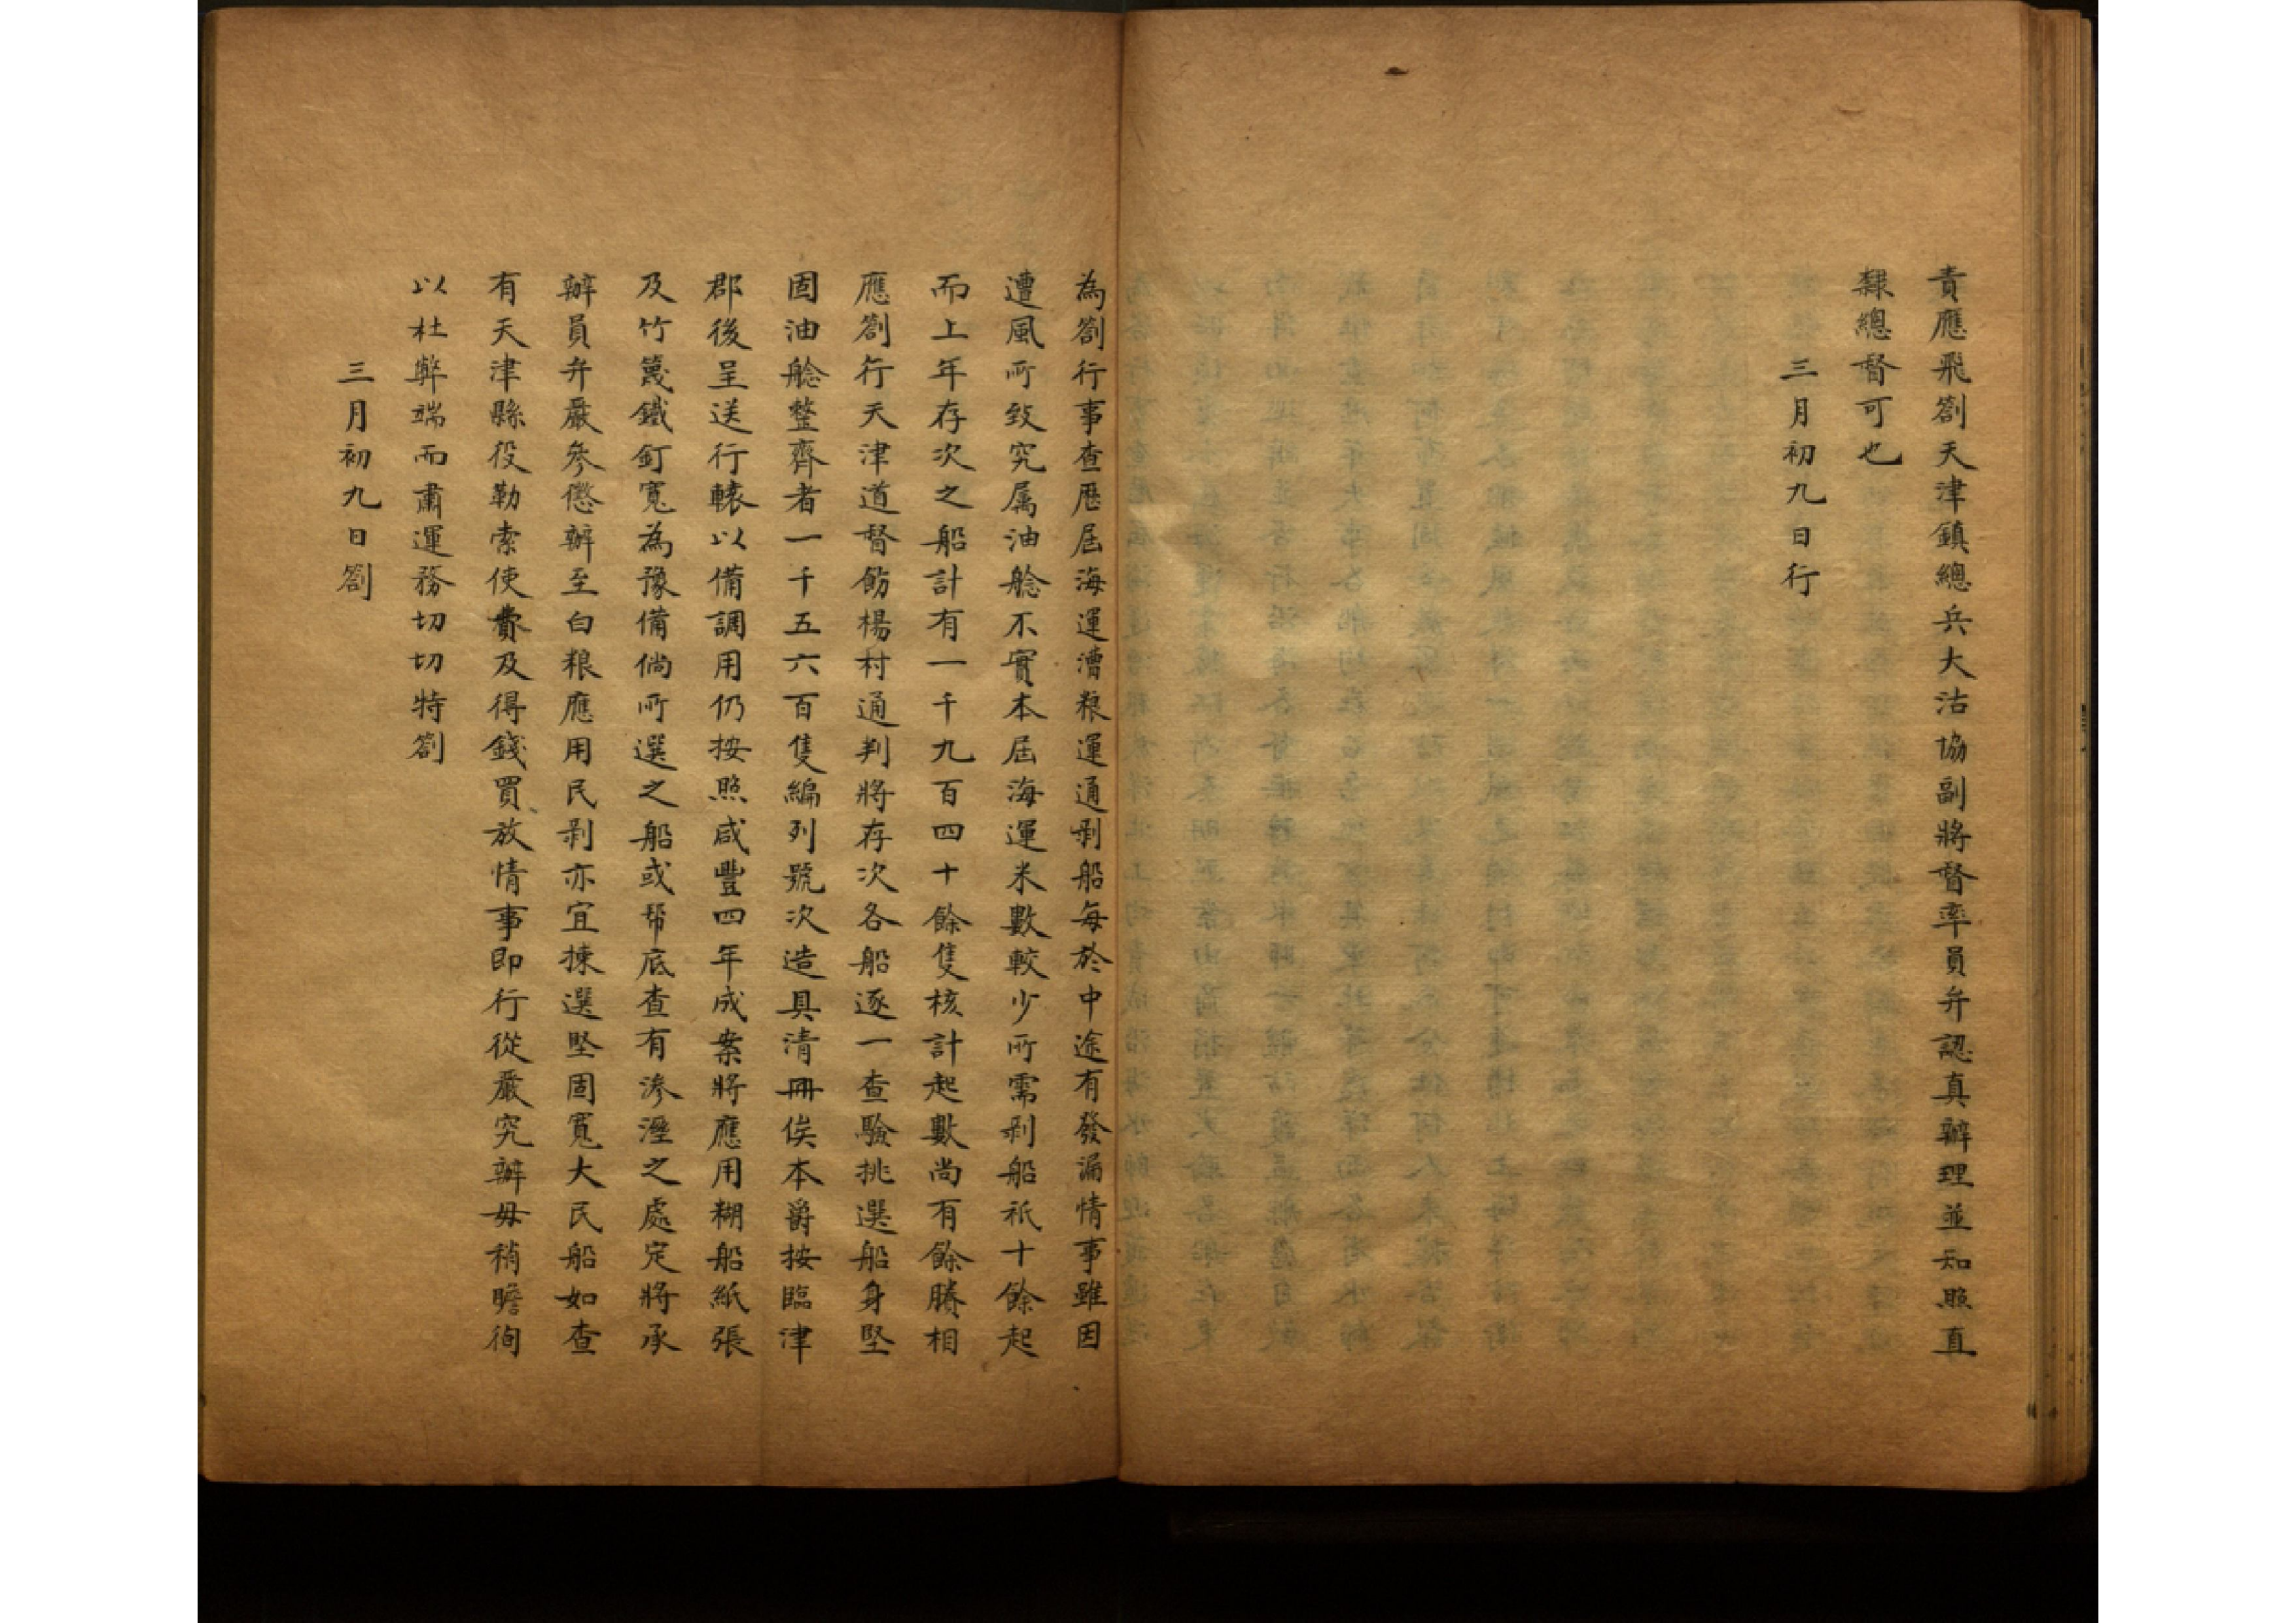 責應飛劄天津鎮總兵大沽協副將督率員弁認真辦理並知照直
隸總督可也
三月初九日行
為劄行事查歷屆海運漕粮運通剥船每於中途有發漏情事雖因
遭風所致究属油艌不實本屆海運米數較少所需剥船祇十餘起
而上年存次之船計有一千九百四十餘隻核計起數尚有餘賸相
應劄行天津道督飭楊村通判將存次各船逐一查驗挑選船身堅
固油艌整齊者一千五六百隻編列號次造具清冊俟本爵按臨津
郡後呈送行轅以備調用仍按照咸豐四年成案將應用糊船紙張
及竹篾鐵釘寬為豫備倘所選之船或幇底查有滲溼之處定將承
辦員弁嚴參懲辦至白粮應用民剥亦宜揀選堅固寬大民船如查
有天津縣役勒索使費及得錢買放情事即行從嚴究辦毋稍瞻徇
以杜弊端而肅運務切切特劄
三月初九日劄